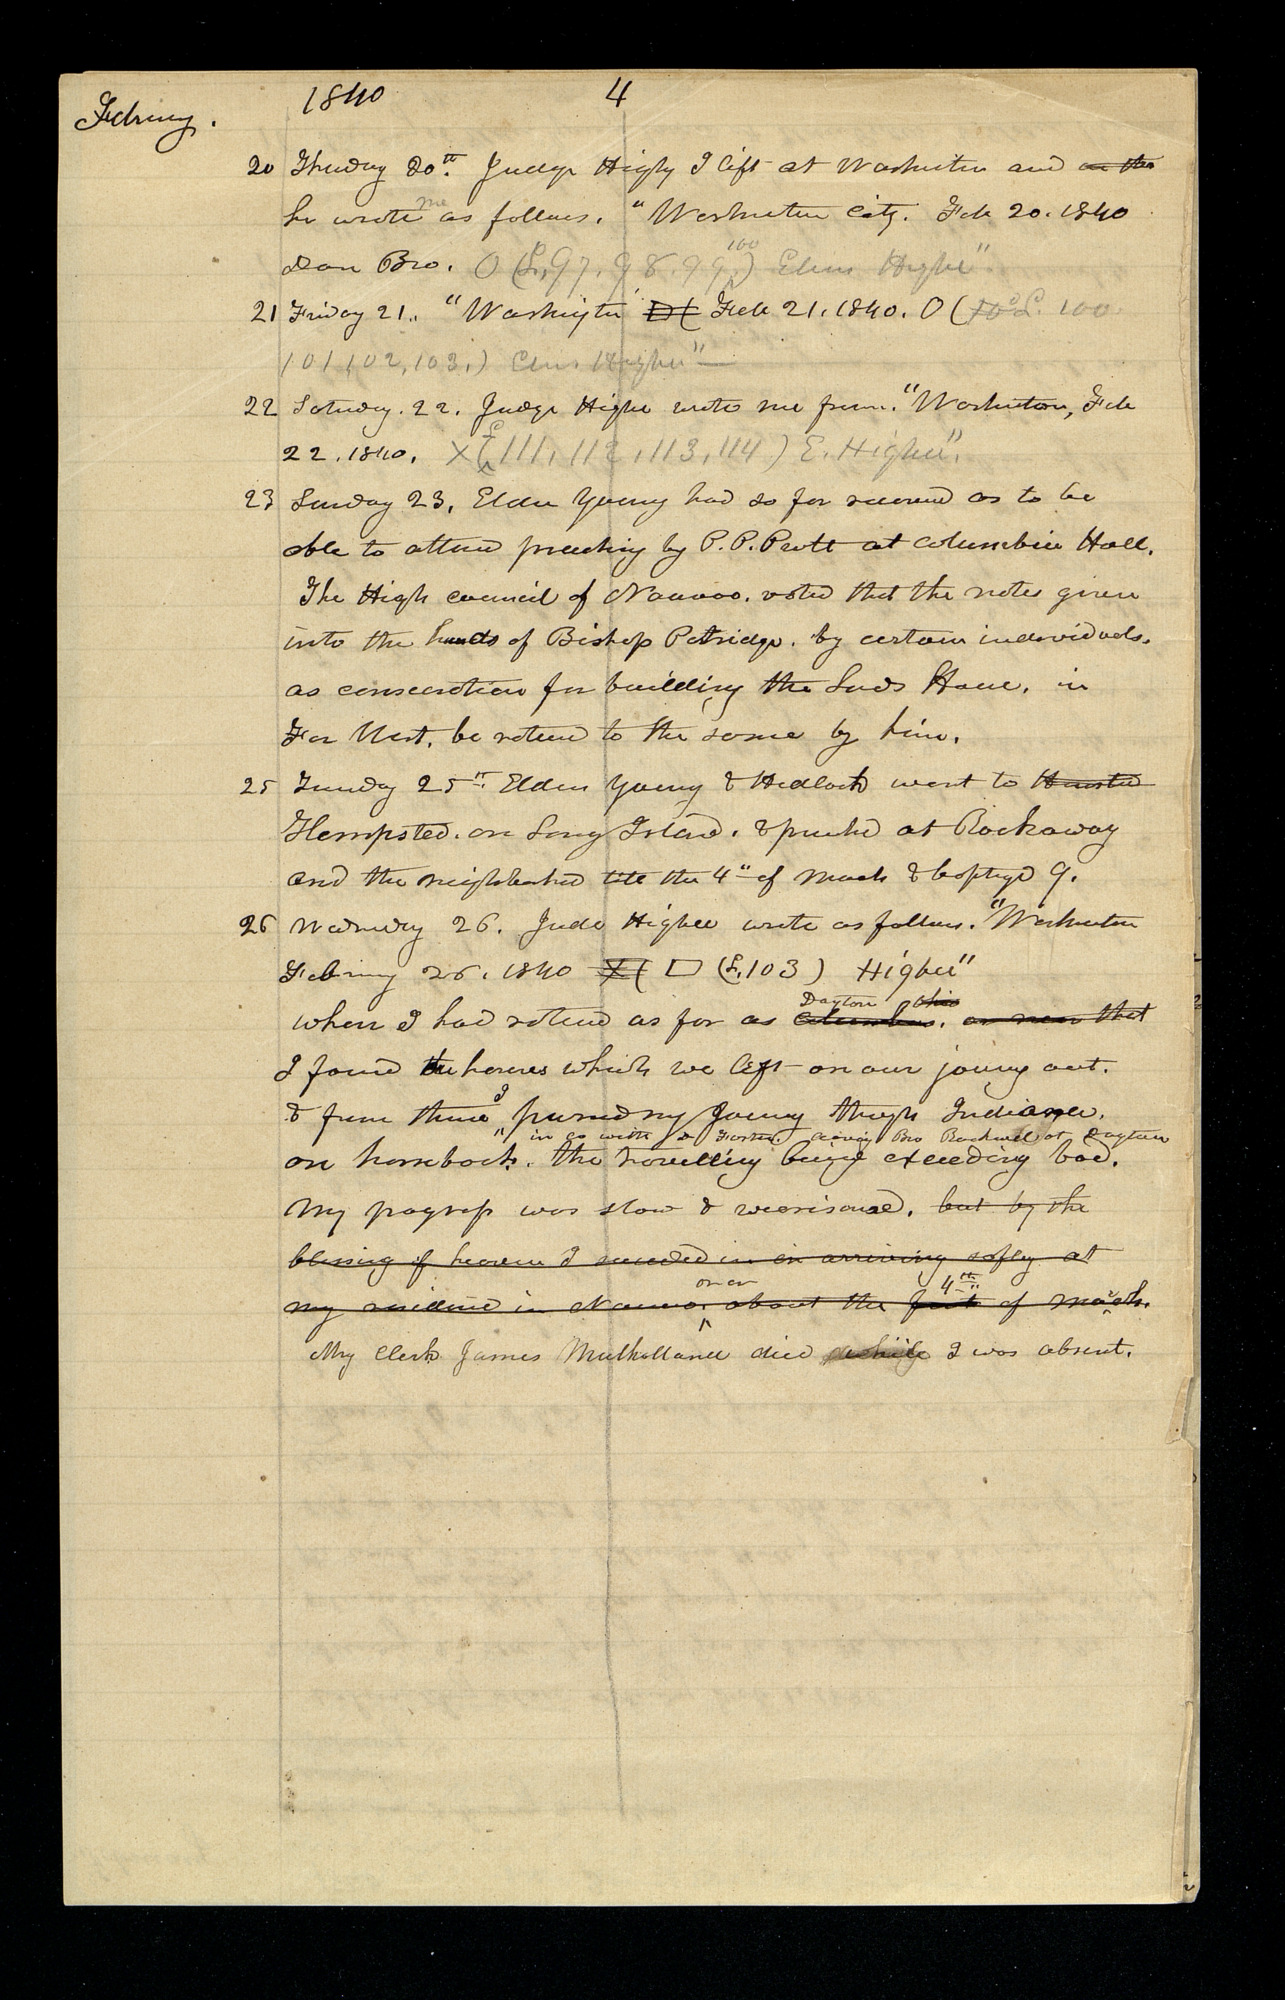 February. 1840 4
20 Thursday 20th. Judge Higby I left at Washington and on the
he wrote me as follows. "Washington City. Feb 20. 1840
Dear Bro. O (L, 97. 98. 99, 100) Elias Higbe"
21 Friday 21., "Washington D( Feb 21. 1840. O ( L. 100
101, 102, 103.) Elias Higbee"—
22 Saturday. 22. Judge Higbe wrote me from. "Washington, Feb
22. 1840. X (L 111, 112, 113, 114) E. Higbee".
23 Sunday 23. Elder Young had so far recovered as to be
able to attend preaching by P. P. Pratt at Columbian Hall.
The High council of Nauvoo. voted that the notes given
into the hands of Bishop Patridge. by certain individuals.
as consecration for building the Lords House. in
Far West. be returned to the same by him.
25 Tuesday 25th. Elders Young & Hedlock went to
Hempsted. on Long Island. & preached at Rockaway
and the neighborhood till the 4th of March & baptized 9.
26 Wednesday 26. Jude Higbee wrote as follows. "Washington
February 26. 1840 X( □ (L, 103) Higbee"
Dayton Ohio
when I had returned as far as Columbus. or near that
I found the horses which we left on our journey out.
& from thence I pursued my Journey through Indiana.
in co with Dr Foster. leaving Bro Rockwell at Dayton
on horseback. the travelling being exceeding bad.
My progress was slow & wearisome. but by the
blessing of heaven I succeeded in in arriving safely at
on or 4th
my residence in Nauvoo. about the first of March.
My Clerk James Mulholland died while I was absent.